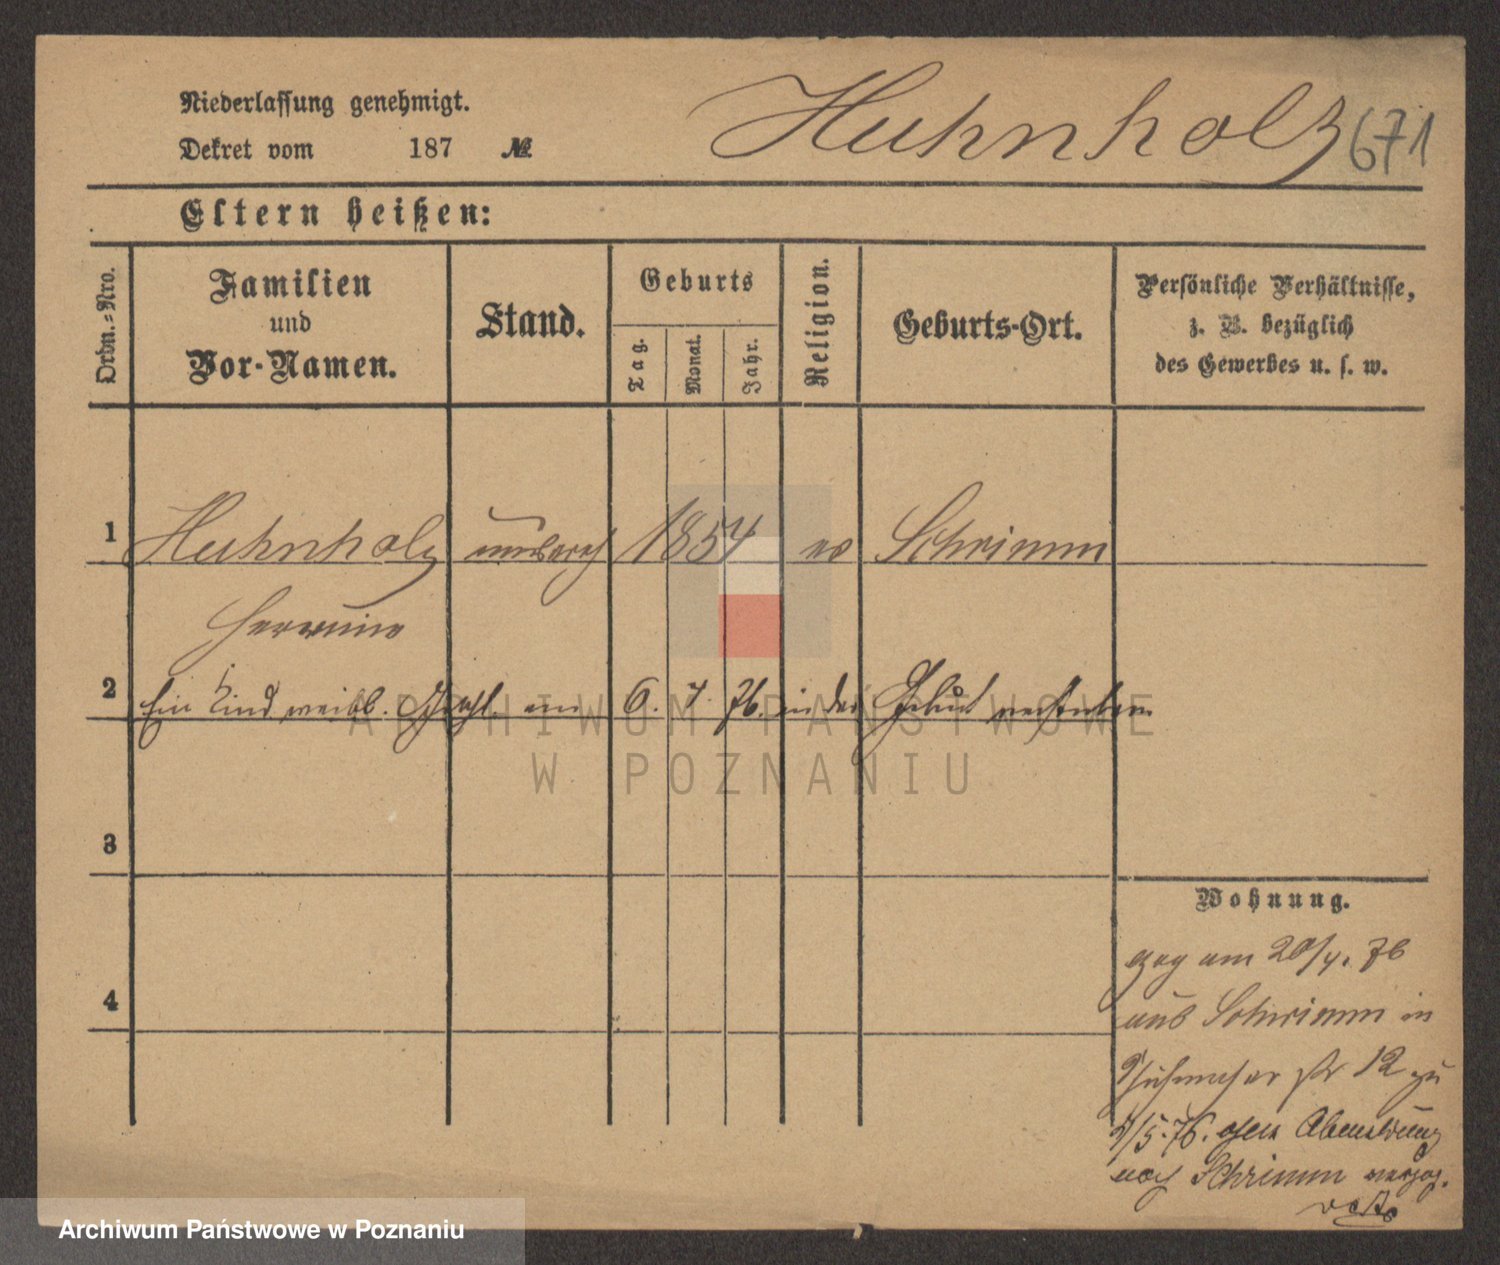 Niederlassung genehmigt.
Dekret vom 187 №
Huhnholz 671
Eltern heißen:
Ordn.-Nro.
Familien
und
Vor-Namen.
Stand.
Geburts
Tag.
Monat.
Jahr.
Religion.
Geburts-Ort.
Persönliche Verhältnisse,
z. B. bezüglich
des Gewerbes u. s. w.
1 Huhnholz unverh 1854 ev Schrimm
2 Ein Kind weibl. Geschl. am 6. 7. 76. in der Geburt verstorben
3
4
Wohnung.
zog am 20/4. 76
aus Schrimm in
Str 12 zu
/5.76. ohne Abmeldung
nach Schrimm verzog.
ARCHIWUM PAŃSTWOWE
W POZNANIU
Archiwum Państwowe w Poznaniu